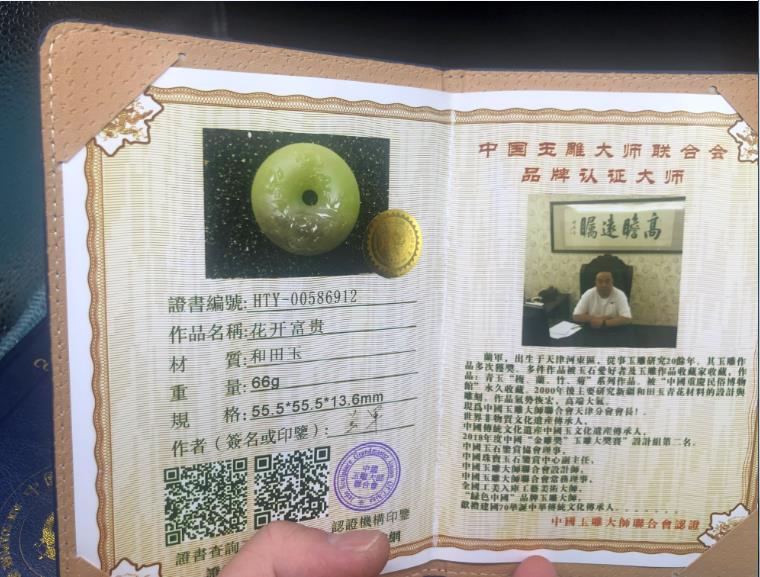 證書編號: HTY-00586912
作品名稱: 花开富贵
材 質: 和田玉
重 量: 66g
規 格: 55.5*55.5*13.6mm
作者（簽名或印鑒）:
中國
玉雕大師
聯合會
證書查詢
認證機構印鑒
網
中国玉雕大师联合会
品牌认证大师
高瞻遠矚
蘭軍，出生于天津河東區，從事玉雕研究20餘年，其玉雕作
品多次獲獎，多件作品被玉石愛好者及玉雕作品收藏家收藏，作
品：青玉“梅、蘭、竹、菊”系列作品，被“中國重慶民俗博物
館”永久收藏。2000年後主要研究新疆和田玉青花材料的設計與
雕刻，作品氣勢恢宏，高端大氣。
現爲中國玉雕大師聯合會天津分會會長！
世界非物質文化遺產傳承人，
中國傳統文化遺產中國玉文化遺產傳承人，
2018年度中國“金雕獎”玉雕大獎賽”設計組第二名，
中國玉石鑒賞協會理事，
中國珠寶玉石鑒賞中心副主任，
中國玉雕大師聯合會設計師，
中國玉雕大師聯合會常務理事，
全國工美入庫工藝美術大師，
“綠色中國”品牌玉雕大師，
獻禮建國70華誕中華傳統文化傳承人。
中國玉雕大師聯合會認證